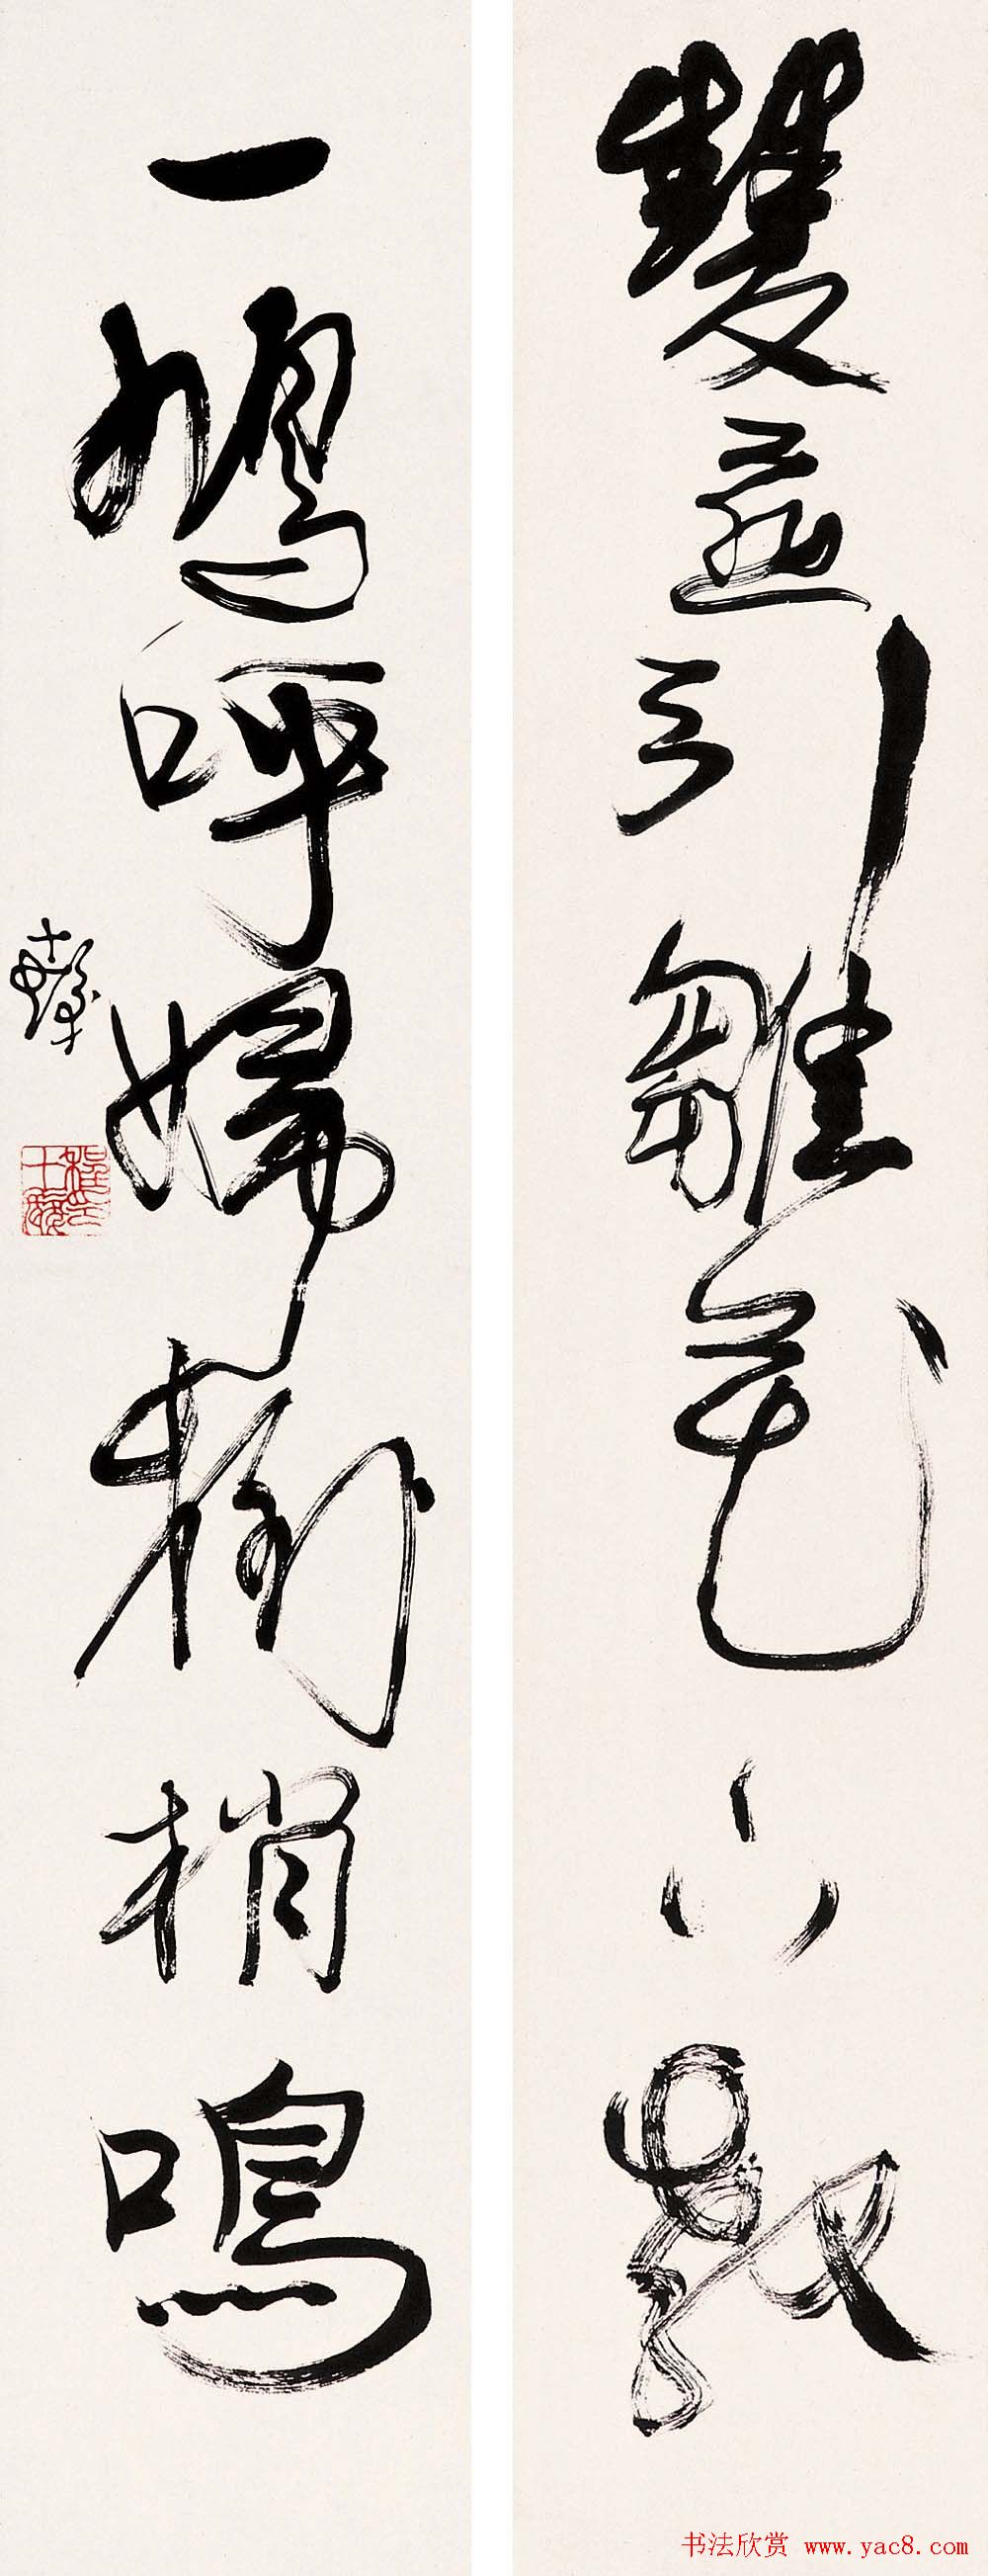 雙燕引雛花下教
一鳩呼婦樹梢鳴
十髮
书法欣赏 www.yac8.com